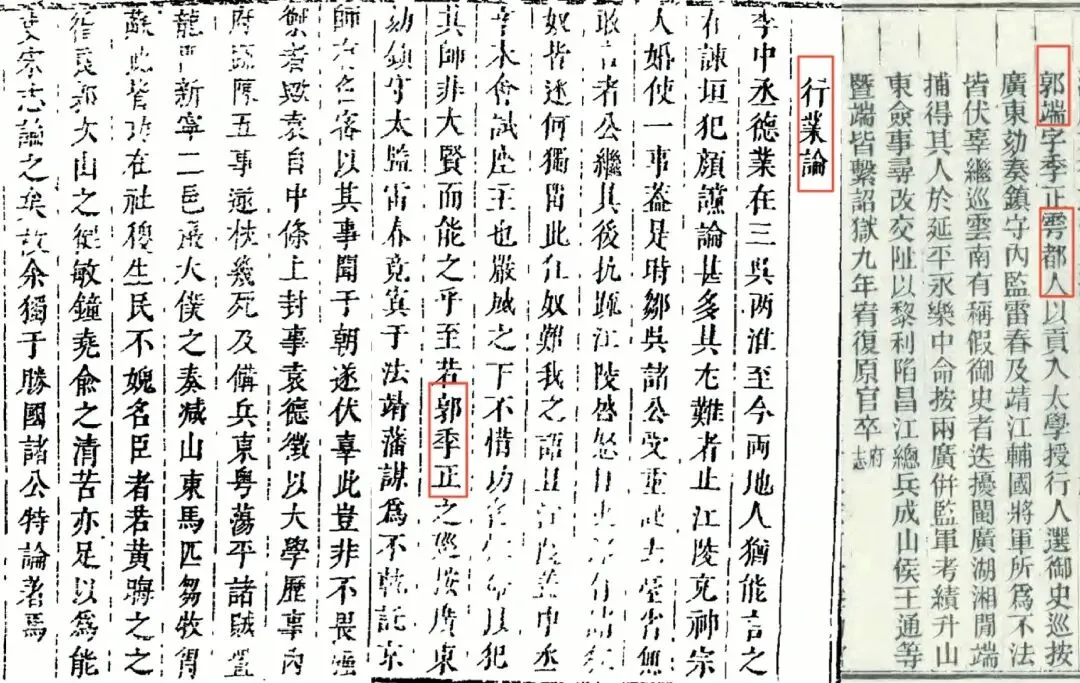 郭端字季正雩都人以貢入太學授行人選御史巡按
廣東劾奏鎮守內監雷春及靖江輔國將軍所為不法
皆伏辜繼巡雲南有稱假御史者迭擾閩廣湖湘閒端
捕得其人於延平永樂中命按兩廣併監軍考績升山
東僉事尋改交阯以黎利陷昌江總兵成山侯王通等
暨端皆繫詔獄九年宥復原官卒府志
行業論
李中丞德業在三吳两淮至今两地人猶能言之
在諫垣犯顔讜論甚多其尢難者止江陵克神宗
人婚使一事葢是時鄒吳諸公受重 士臺省無
敢言者公繼其後抗疏江陵 怒
奴皆迷何獨畱此仕奴難我之語且江陵 中丞
辛未會試座主也嚴威之下不惜功名 命以犯
其師非大賢而能之乎至若郭季正之廵按廣東
劾鎮守太監雷春竟寘于法靖藩謀為不軌託京
師 名審以其事聞于朝遂伏辜此豈非不畏彊
禦者歟袁自中條上封事袁德徵以大學歷事內
府疏陳五事遂杖幾死及備兵東粤蕩平諸賊置
龍門新寧二邑張大僕之奏減山東馬匹芻牧胥
蘇此皆功在社稷生民不媿名臣者若黄 之之
循良郭文山之從敏鐘堯俞之清苦亦足以為能
吏宋志論之矣故余獨于勝國諸公特論著焉